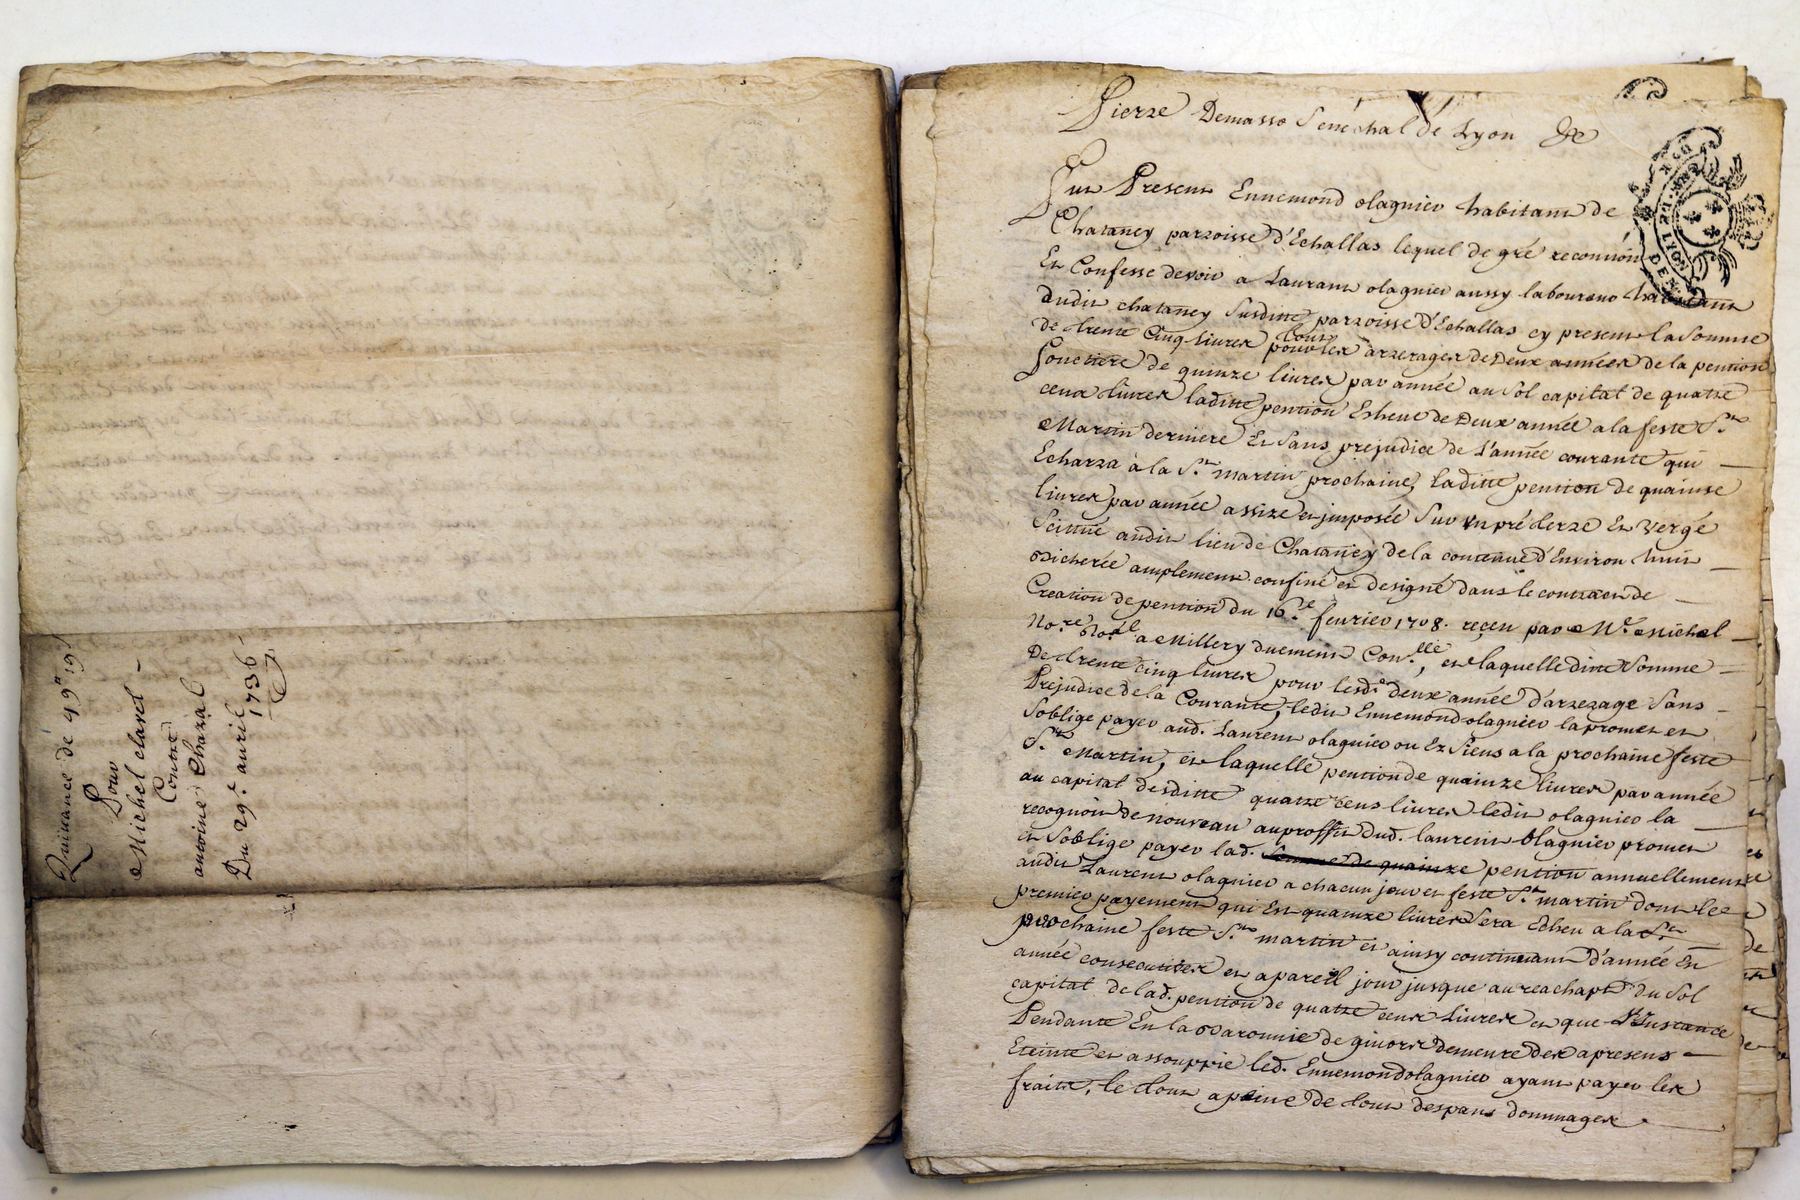 Quittance de 49ᵗᵗ 19ˢ
Pour
Michel clavel –
Contre
antoine Chazal
Du 29.ᵉ auril
1736
Pierre Demasso Sénéchal de Lyon &c
Fut Present Ennemond olagnier habitant de
Chataney parroisse d'Echallas lequel de gré reconnoit
Et Confesse devoir a Laurant olagnier aussy laboureur habitant
dudit chataney Susditte parroisse d'Echallas cy present la Somme
de trente Cinq livres pour les arrerages de Deux années de la pention
fonciere de quinze livres par année au Sol capital de quatre
cens livres laditte pention Escheue de Deux année a la feste Sᵗ
Martin derniere Et Sans prejudice de L'année courante qui –
Echerra à la Sᵗ martin prochaine, Laditte pention de quainse
livres par année assize et imposée Sur un pré terre Et vergé
Scittué audit lieu de Chataney de la contenue d'Environ huit –
Bicherée amplement confiné et designé dans le contract de –
Creation de pention du 16.ᵉ fevrier 1708. reçeu par Mᵉ Michel –
No.ʳᵉ Ro.ᵃˡ a Millery duement Con.ˡˡᵉ, et laquelle ditte Somme –
De trente cinq livres pour lesd.ᵉ deux année d'arrerage Sans –
Prejudice de la Courante, ledit Ennemond olagnier la promet et
S'oblige payer aud. Laurent olagnier ou Ez Siens a la prochaine feste
Sᵗ Martin, et laquelle pention de quainze livres par année
au capital desditte quatre cens livres ledit olagnier la –
recognoit de nouveau au proffit dud. laurent Olagnier promet
et S'oblige payer lad. Somme de quainze pention annuellement
audit Laurent olagnier a chacun jour et feste Sᵗ martin dont le
premier payement qui Est quainze livres Sera Echeu a la Sᵗ
prochaine feste Sᵗ martin et ainsy continuant d'année En
année consecutives et a pareil jour jusque au reachapt du Sol
capital de lad. pention de quatre cens Livres et que L'Instance
Pendante En la Baronnie de givors demeure des apresens –
Eteinte et assouppie led. Ennemond olagnier ayant payer les
fraits, le tout a peine de tout despans dommages